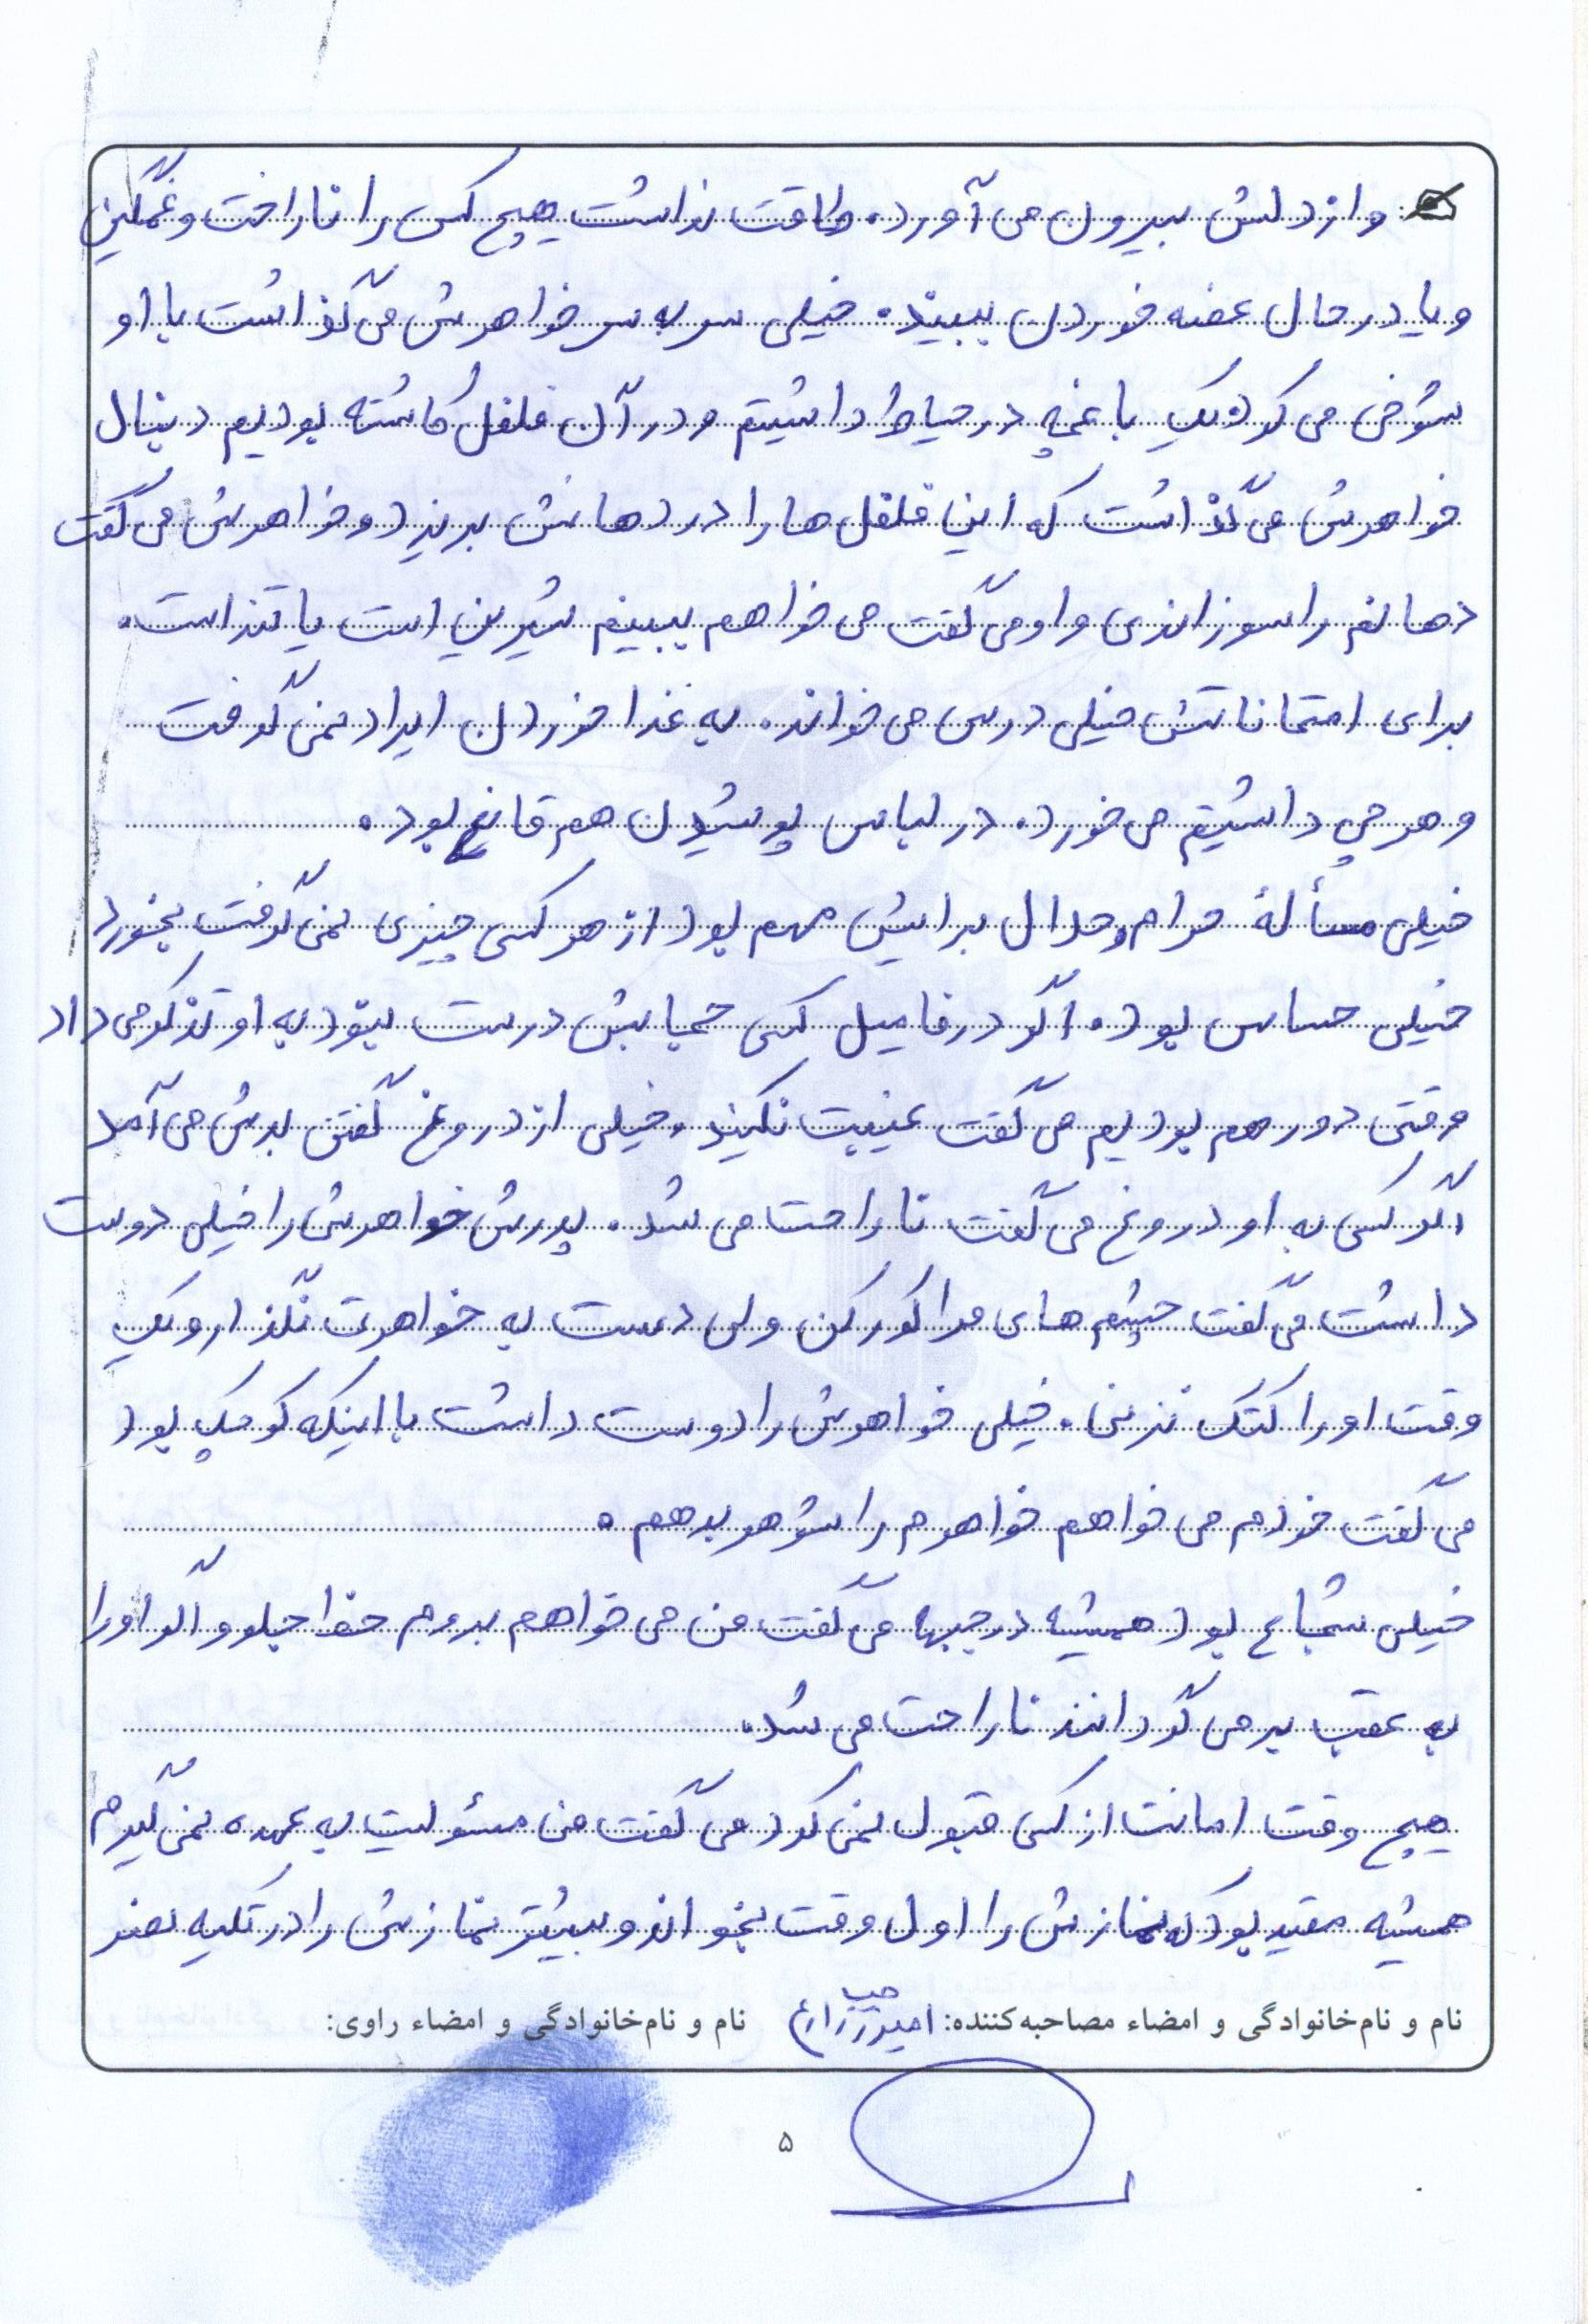 و از دلش بیرون می آورد. طاقت نداشت هیچ کس را ناراحت و غمگین
و یا در حال غصه خوردن ببیند. خیلی سر به سر خواهرش می گذاشت با او
شوخی می کرد یک باغچه در حیاط داشتیم و در آن فلفل کاشته بودیم دنبال
خواهرش می گذاشت که این فلفل ها را در دهانش بریزد و خواهرش می گفت
دهانم را سوزاندی و او می گفت می خواهم ببینم شیرین است یا تند است.
برای امتحاناتش خیلی درس می خواند. به غذا خوردن ایراد نمی گرفت
و هر چی داشتیم می خورد. در لباس پوشیدن هم قانع بود.
خیلی مسألۀ حرام و حلال برایش مهم بود از هر کسی چیزی نمی گرفت بخورد
خیلی حساس بود. اگر در فامیل کسی حجابش درست نبود به او تذکر می داد
وقتی دور هم بودیم می گفت غیبت نکنید. خیلی از دروغ گفتن بدش می آمد
اگر کسی به او دروغ می گفت ناراحت می شد. پدرش خواهرش را خیلی دوست
داشت می گفت چشم های مرا کور کن ولی دست به خواهرت نگذار و یک
وقت او را کتک نزنی. خیلی خواهرش را دوست داشت با اینکه کوچک بود
می گفت خودم می خواهم خواهرم را شوهر بدهم.
خیلی شجاع بود همیشه در جبهه می گفت من می خواهم بروم خط جلو و اگر او را
به عقب بر می گرداندند ناراحت می شد.
هیچ وقت امانت از کسی قبول نمی کرد می گفت من مسئولیت به عهده نمی گیرم
همیشه مقید بود که نمازش را اول وقت بخواند و بیشتر نمازش را در تکیه
نام و نام‌خانوادگی و امضاء مصاحبه‌کننده: نام و نام‌خانوادگی و امضاء راوی:
۵